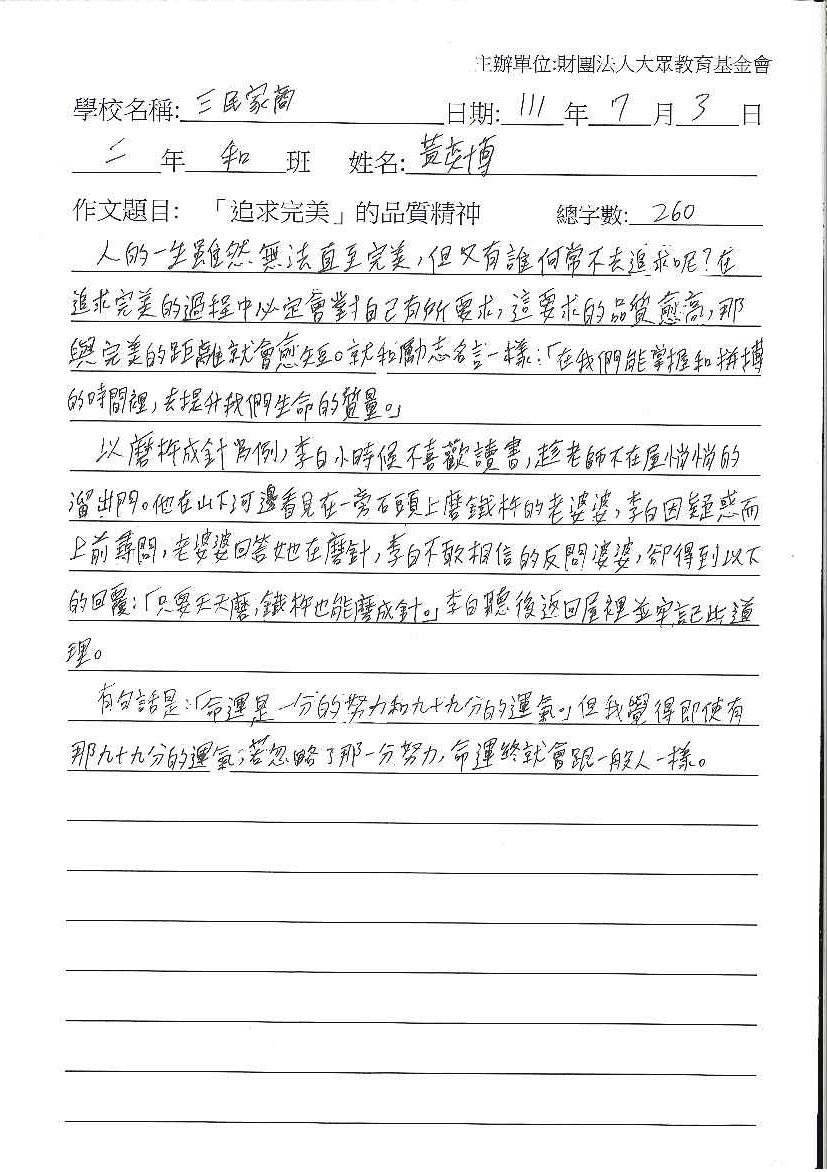 主辦單位:財團法人大眾教育基金會
學校名稱: 三民家商 日期: 111 年 7 月 3 日
二 年 和 班 姓名: 黃奕博
作文題目: 「追求完美」的品質精神 總字數: 260
人的一生雖然無法直至完美,但又有誰何常不去追求呢?在
追求完美的過程中必定會對自己有所要求,這要求的品質愈高,那
與完美的距離就會愈短。就和勵志名言一樣:「在我們能掌握和拼搏
的時間裡,去提升我們生命的質量。」
以磨杵成針為例,李白小時候不喜歡讀書,趁老師不在屋悄悄的
溜出門。他在山下河邊看見在一旁石頭上磨鐵杵的老婆婆,李白因疑惑而
上前尋問,老婆婆回答她在磨針,李白不敢相信的反問婆婆,卻得到以下
的回覆:「只要天天磨,鐵杵也能磨成針。」李白聽後返回屋裡並牢記此道
理。
有句話是:「命運是一分的努力和九十九分的運氣。」但我覺得即使有
那九十九分的運氣,若忽略了那一分努力,命運終就會跟一般人一樣。